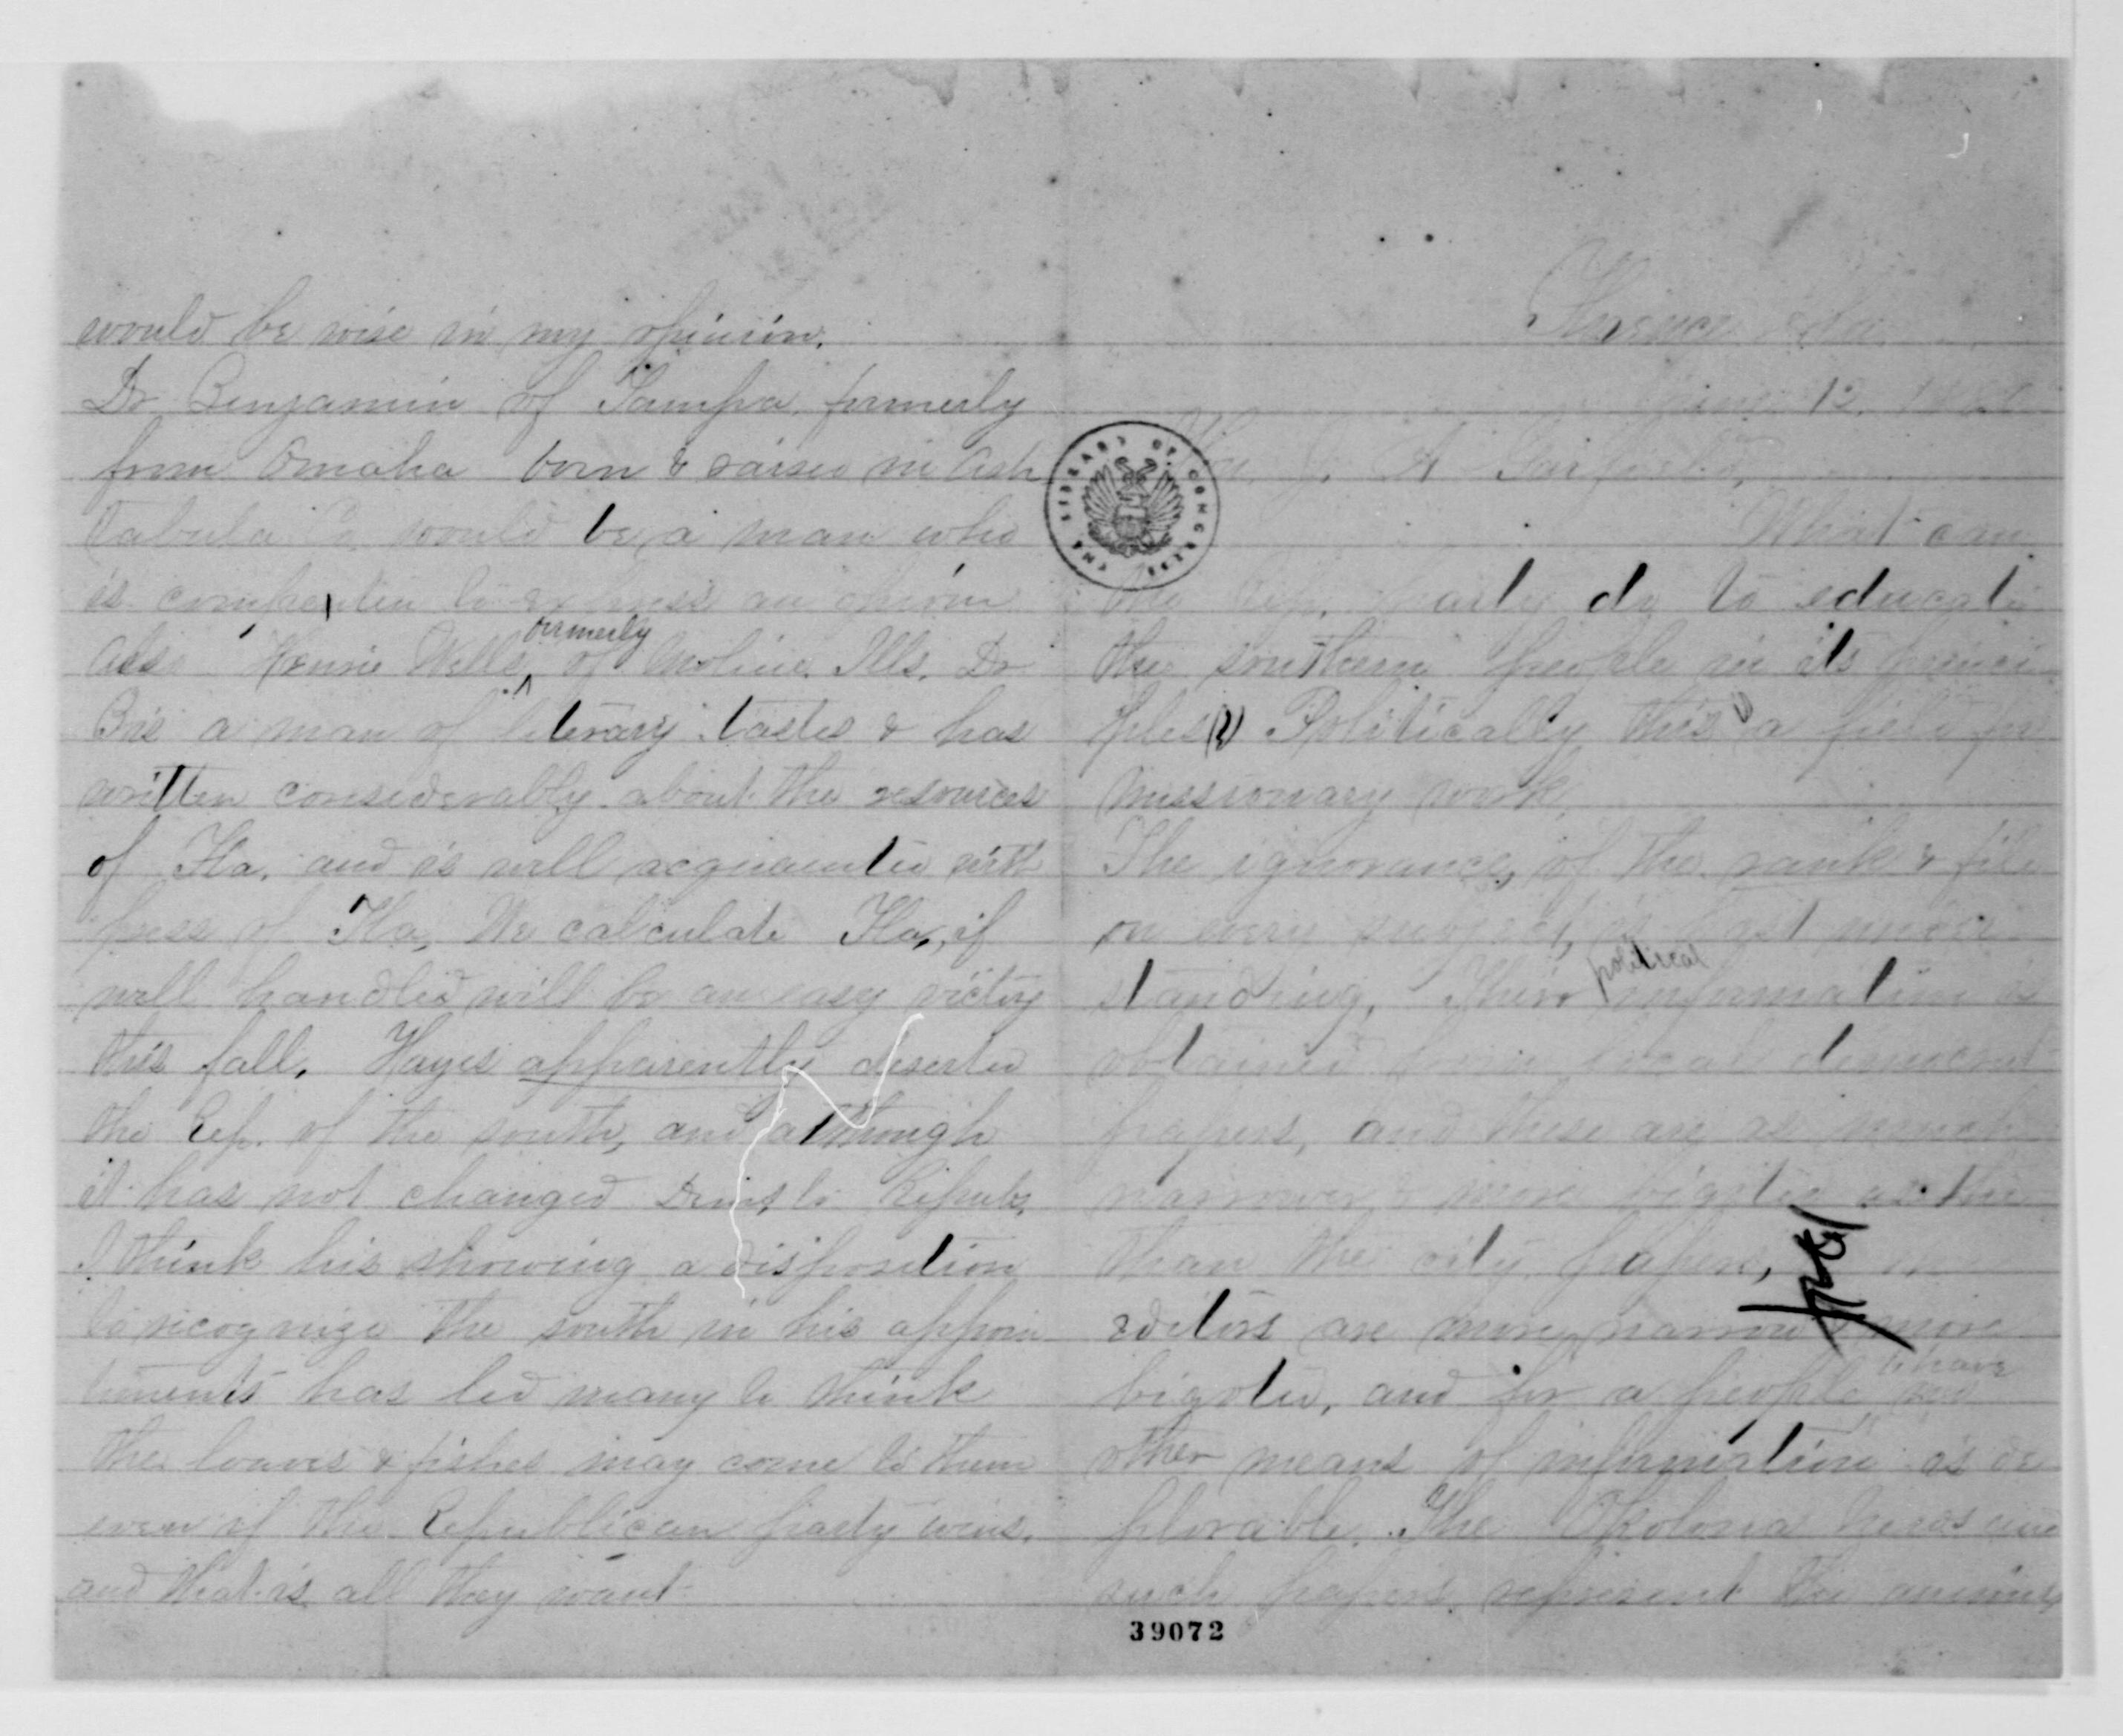 would be wise in my opinion.
Dr Benjamin of Tampa, formerly
from Omaha born & raised in Ash
tabula Co. would be a man who
is competen to express an opinion
Also Wells, formerly of Moline, Ills. Dr
B is a man of literary tastes & has
written considerably about the resources
of Fla. and is well acquainted with
press of Fla, We calculate Fla, if
well handled will be an easy victory
this fall. Hayes apparently deserted
the Rep. of the south, and although
it has not changed Dems to Repubs,
I think his showing a disposition
to recognize the south in his appoin
tments has led many to think
the loaves & fishes may come to them
even if the Republican party wins.
and that is all they want
Fla.
June 12
Hon. J. A Garfield,
What can
the Rep. party do to educate
the southern people in its princi
ples(?) Politically this a field for
missionary work.
The ignorance, of the rank & file
on every subject, is past under
standing. Their political information is
obtained from local democrat
papers, and these are as much
narrower & more bigoted as the
than the city papers,
editors are more narrow & more
bigoted, and for a people to have no
other means of information is de
plorable. The Okolona News and
such papers represent the animus
THE LIBRARY OF CONGRESS
39072